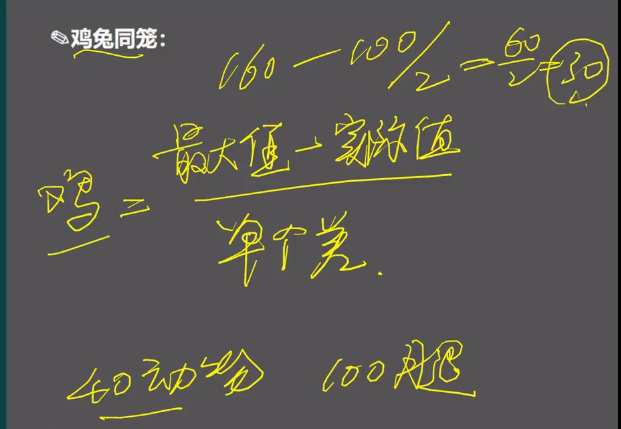 鸡兔同笼:
160-100/2=60/2=30
鸡=最大值-实际值/单个差.
40动物 100月退